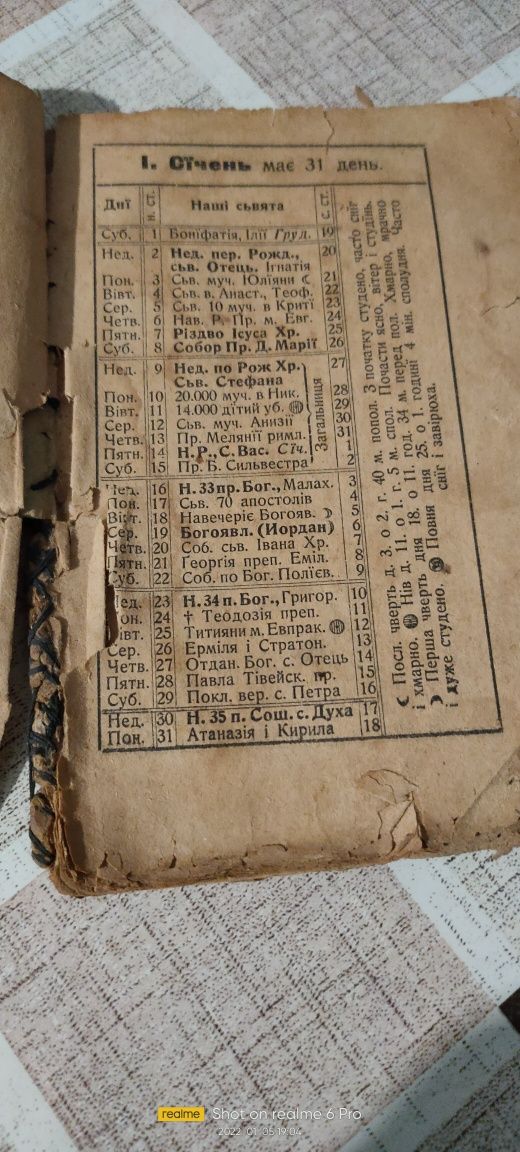 I. Січень має 31 день.
Днї н. ст. Наші сьвята с. ст.
Суб. 1 Воніфатія, Ілїї Груд. 19
Нед. 2 Нед. пер. Рожд., 20
сьв. Отець. Ігнатія
Пон. 3 Сьв. муч. Юліяни ☾ 21
Вівт. 4 Сьв. в. Анаст., Теоф. 22
Сер. 5 Сьв. 10 муч. в Криті 23
Четв. 6 Нав. Р. Пр. м. Евг. 24
Пятн. 7 Різдво Ісуса Хр. 25
Суб. 8 Собор Пр. Д. Марії 26
Нед. 9 Нед. по Рож Хр. 27
Сьв. Стефана
Пон. 10 20.000 муч. в Ник. 28
Вівт. 11 14.000 дітий уб. 29
Сер. 12 Сьв. муч. Анизії 30
Четв. 13 Пр. Мелянії римл. 31
Пятн. 14 Н. Р., С. Вас. Сїч. 1
Суб. 15 Пр. Б. Сильвестра 2
Загальниця
Нед. 16 Н. 33 пр. Бог., Малах. 3
Пон. 17 Сьв. 70 апостолів 4
Вівт. 18 Навечеріє Богояв. ☽ 5
Сер. 19 Богоявл. (Иордан) 6
Четв. 20 Соб. сьв. Івана Хр. 7
Пятн. 21 Георгія преп. Еміл. 8
Суб. 22 Соб. по Бог. Полієв. 9
Нед. 23 Н. 34 п. Бог., Григор. 10
Пон. 24 † Теодозія преп. 11
Вівт. 25 Титияни м. Евпрак. 12
Сер. 26 Ерміля і Стратон. 13
Четв. 27 Отдан. Бог. с. Отець 14
Пятн. 28 Павла Тівейск. пр. 15
Суб. 29 Покл. вер. с. Петра 16
Нед. 30 Н. 35 п. Сош. с. Духа 17
Пон. 31 Атаназія і Кирила 18
☾ Посл. чверть д. 3. о 2. г. 40 м. попол. З початку студено, часто сніг
і хмарно. Нів д. 11. о 1. г. 5 м. спол. Почасти ясно, вітер і студїнь.
☽ Перша чверть дня 18. о 11. год. 34 м. перед пол. Хмарно, мрачно
і дуже студено. Повня дня 25. о 1. годині 4 мін. сполудня. Часто
сніг і завірюха.
realme Shot on realme 6 Pro
2022/01/05 19:04